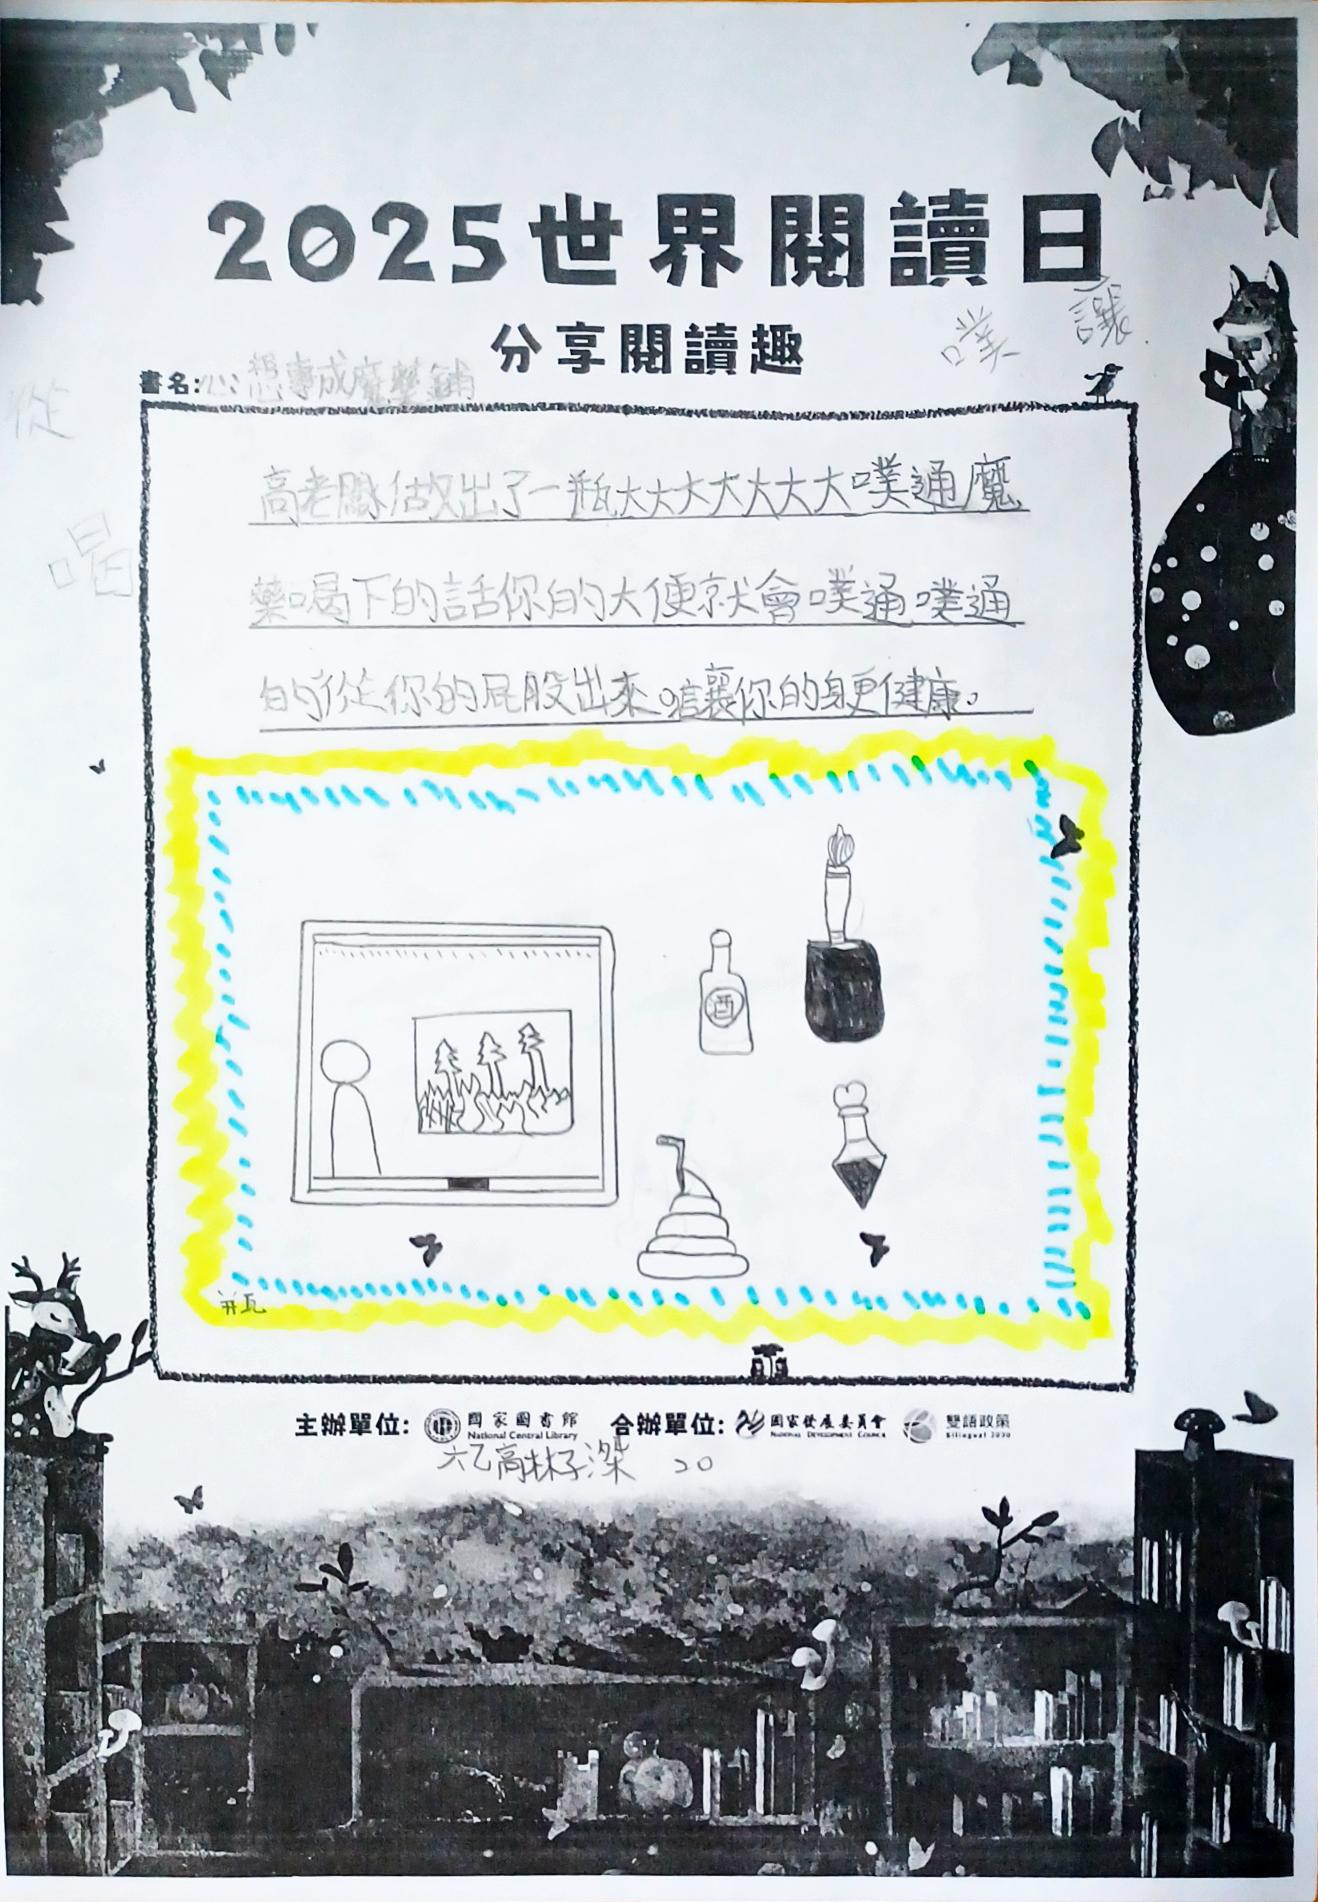 2025世界閱讀日
分享閱讀趣
噗
讓
書名:心想事成魔藥鋪
從
高老闆做出了一瓶大大大大大大大噗通魔
喝
藥喝下的話你的大便就會噗通噗通
的從你的屁股出來。讓你的身更健康。
酒
瓶
主辦單位: 國家圖書館 National Central Library 合辦單位: 國家發展委員會 National Development Council 雙語政策 Bilingual 2030
六乙高林子深 20